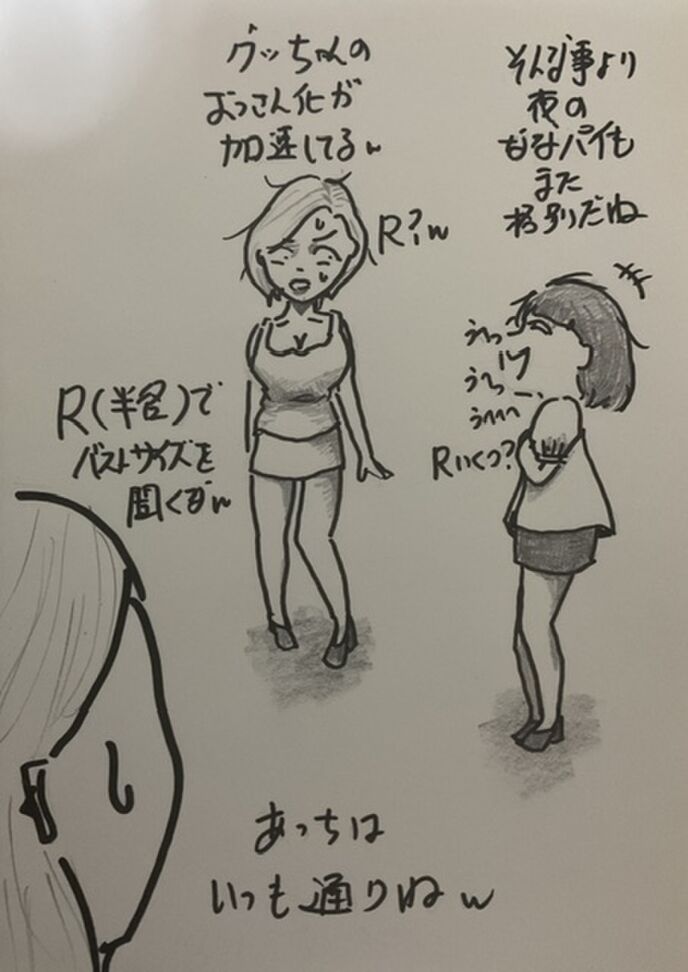 そんな事より
夜の
ななパイも
また
格別だね
うへっ
うへっ
うへへへ
Rいくつ?
グッちゃんの
おっさん化が
加速してるw
R?w
R(半径)で
バストサイズを
聞くなw
あっちは
いつも通りねw